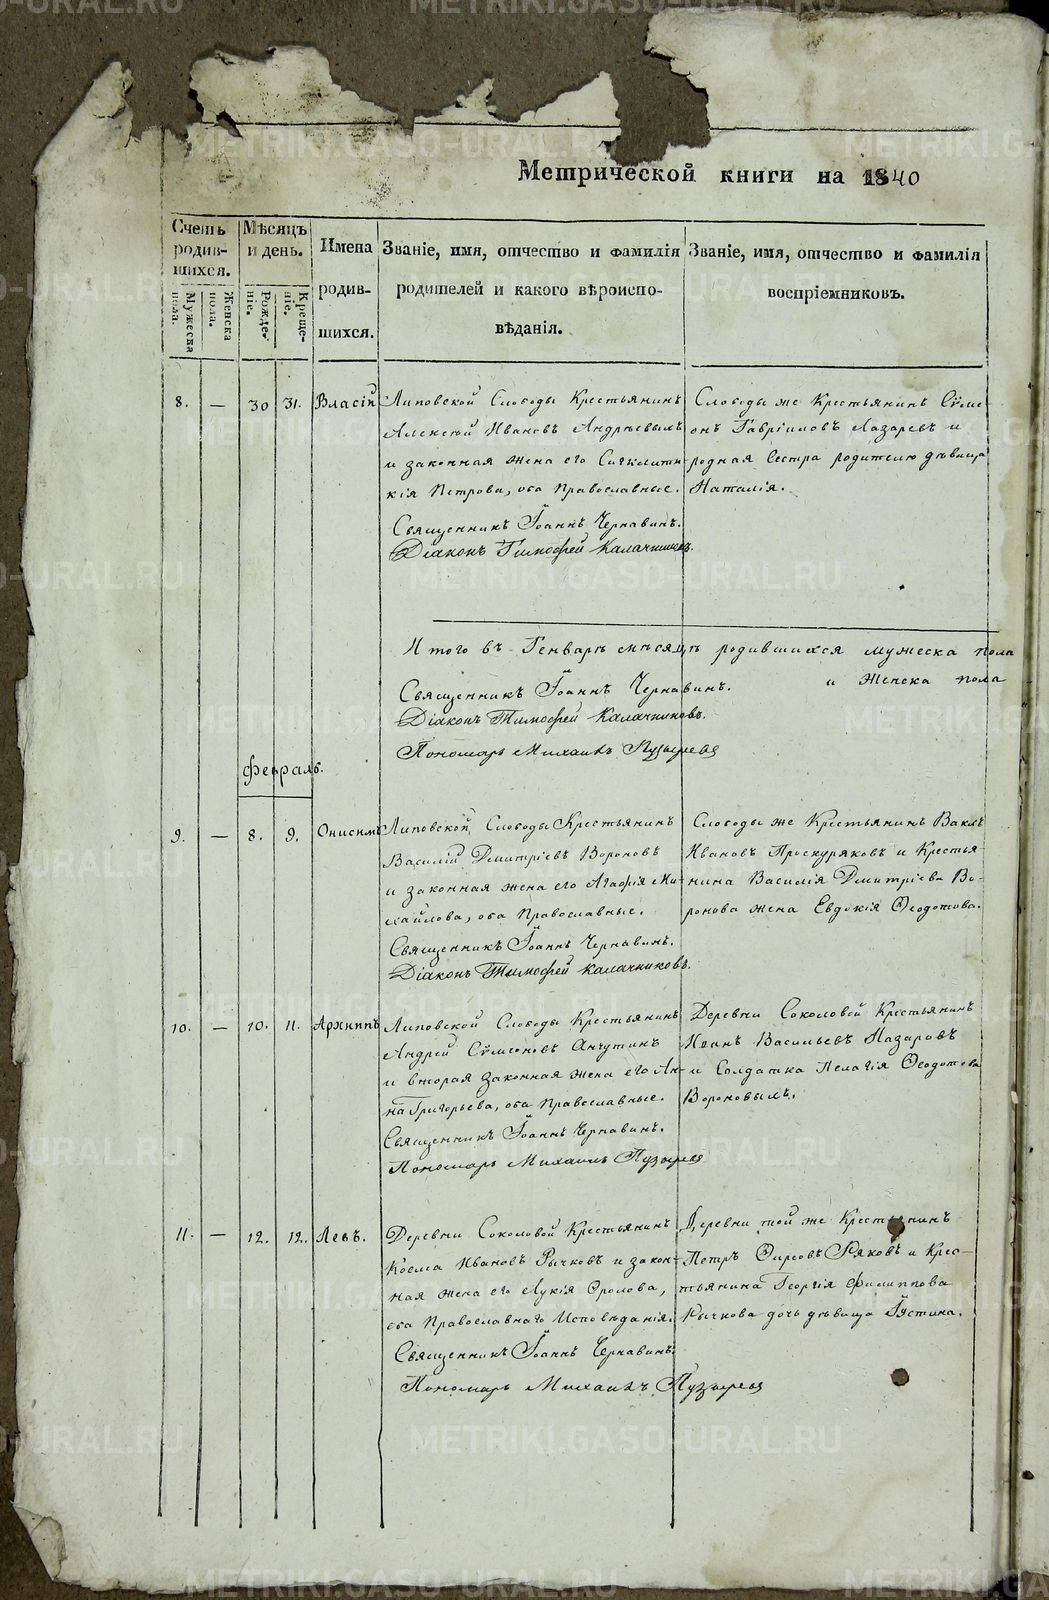 Метрической книги на 1840
Счетъ родив-шихся.
Мѣсяцъ и день.
Имена родив-шихся.
Званіе, имя, отчество и фамилія родителей и какого вѣроиспо-вѣданія.
Званіе, имя, отчество и фамилія воспріемниковъ.
Мужеска пола.
Женска пола.
Рожде-ніе.
Креще-ніе.
8. — 30 31. Власій
Липовской Слободы Крестьянинъ
Алексѣй Ивановъ Андрѣевыхъ
и законная жена его Сигклити-
кія Петрова, оба Православные.
Священникъ Іоаннъ Чернавинъ.
Діаконъ Тимофей Калачниковъ.
Слободы же Крестьянинъ Сѵме-
онъ Гавріиловъ Лазаревъ и
родная Сестра родителю дѣвица
Наталія.
Итого въ Генварѣ мѣсяцѣ родившихся мужеска пола
и Женска пола
Священникъ Іоаннъ Чернавинъ.
Діаконъ Тимофей Калачниковъ.
Пономарь Михаилъ Пузыревъ
Февраль.
9. — 8. 9. Онисимъ
Липовской Слободы Крестьянинъ
Василій Дмитріевъ Вороновъ
и законная жена его Агафія Ми-
хайлова, оба Православные.
Священникъ Іоаннъ Чернавинъ.
Діаконъ Тимофей Калачниковъ.
Слободы же Крестьянинъ
Ивановъ Проскуряковъ и Крестья-
нина Василія Дмитріева Во-
ронова жена Евдокія Ѳеодотова.
10. — 10. 11. Архиппъ
Липовской Слободы Крестьянинъ
Андрей Сѵмеоновъ Анчутинъ
и вторая законная жена его Ан-
на Григорьева, оба Православные.
Священникъ Іоаннъ Чернавинъ.
Пономарь Михаилъ Пузыревъ
Деревни Соколовой Крестьянинъ
Иванъ Васильевъ Назаровъ
и Солдатка Пелагія Ѳеодотова
Вороновыхъ.
11. — 12. 12. Левъ.
Деревни Соколовой Крестьянинъ
Косма Ивановъ Рычковъ и закон-
ная жена его Лукія Фролова,
оба Православнаго Исповѣданія.
Священникъ Іоаннъ Чернавинъ.
Пономарь Михаилъ Пузыревъ
Деревни той же Крестьянинъ
Петръ и Крес-
тьянина Георгія Филиппова
Рычкова дочь дѣвица Іустина.
METRIKI.GASO-URAL.RU